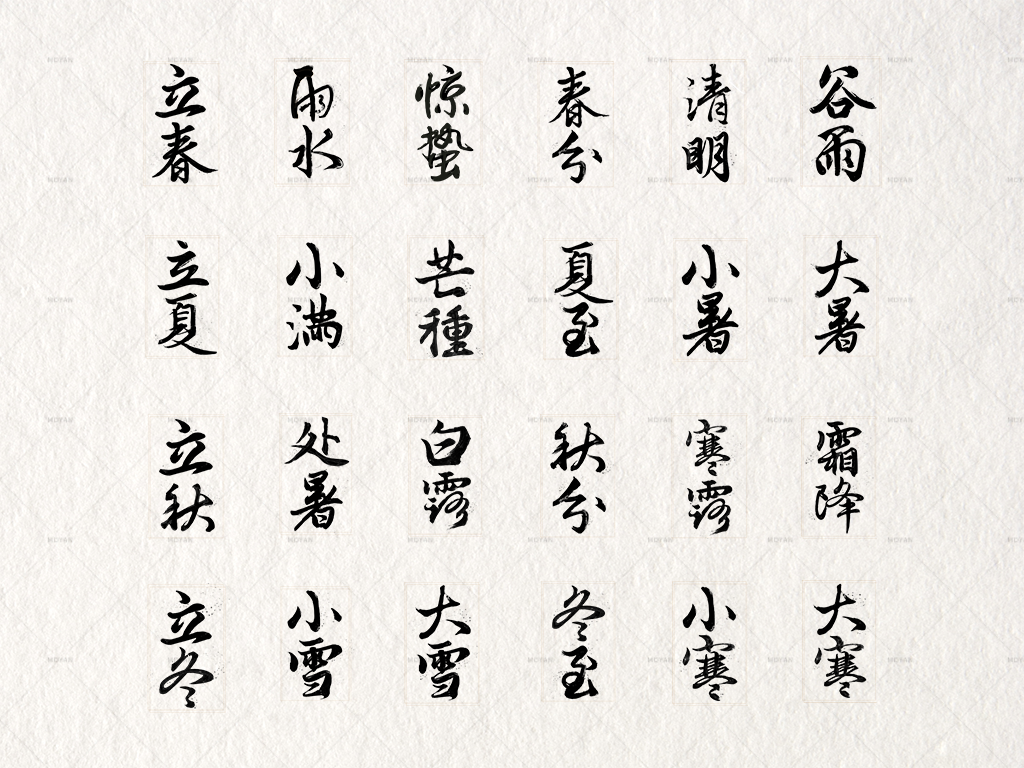 立春 雨水 惊蛰 春分 清明 谷雨
立夏 小满 芒種 夏至 小暑 大暑
立秋 处暑 白露 秋分 寒露 霜降
立冬 小雪 大雪 冬至 小寒 大寒